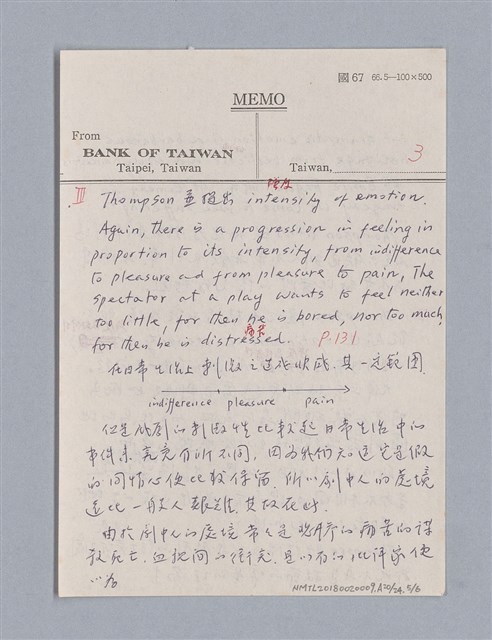 國67 66.5—100×500
MEMO
From
BANK OF TAIWAN
Taipei, Taiwan
Taiwan, 3
强度
III Thompson 並提出 intensity of emotion.
Again, there is a progression in feeling in
proportion to its intensity, from indifference
to pleasure and from pleasure to pain, The
spectator at a play wants to feel neither
too little, for then he is bored, nor too much,
for then he is distressed. P.131
在日常生活上刺激之造成快感,其一定範圍
indifference pleasure pain
但是戲劇的刺激性比較起日常生活中的
事件來究竟有所不同,因為我們知道它是假
的同情心便比較保留.所以劇中人的處境
遠比一般人艱難,其故在此.
由於劇中人的處境常常是 的痛苦的謀
殺死亡, 的衝突,是以有的批評家便
以為
NMTL20180020009.A20/24.5/6